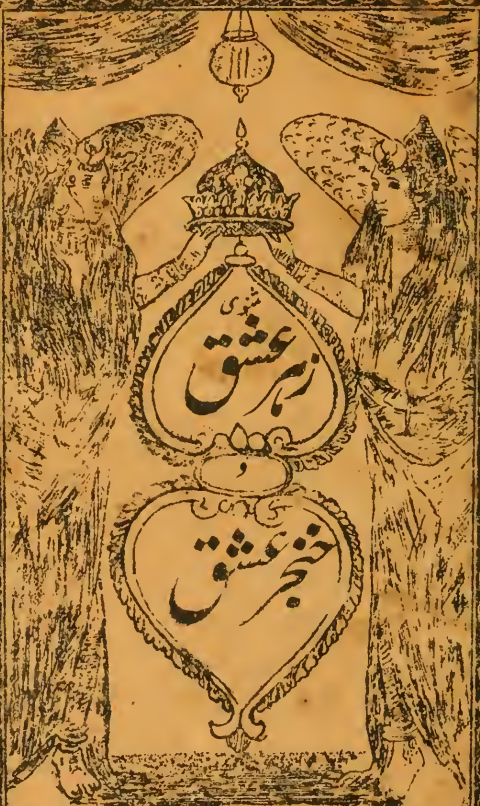 مثنوی
زہر عشق
و
خنجر عشق